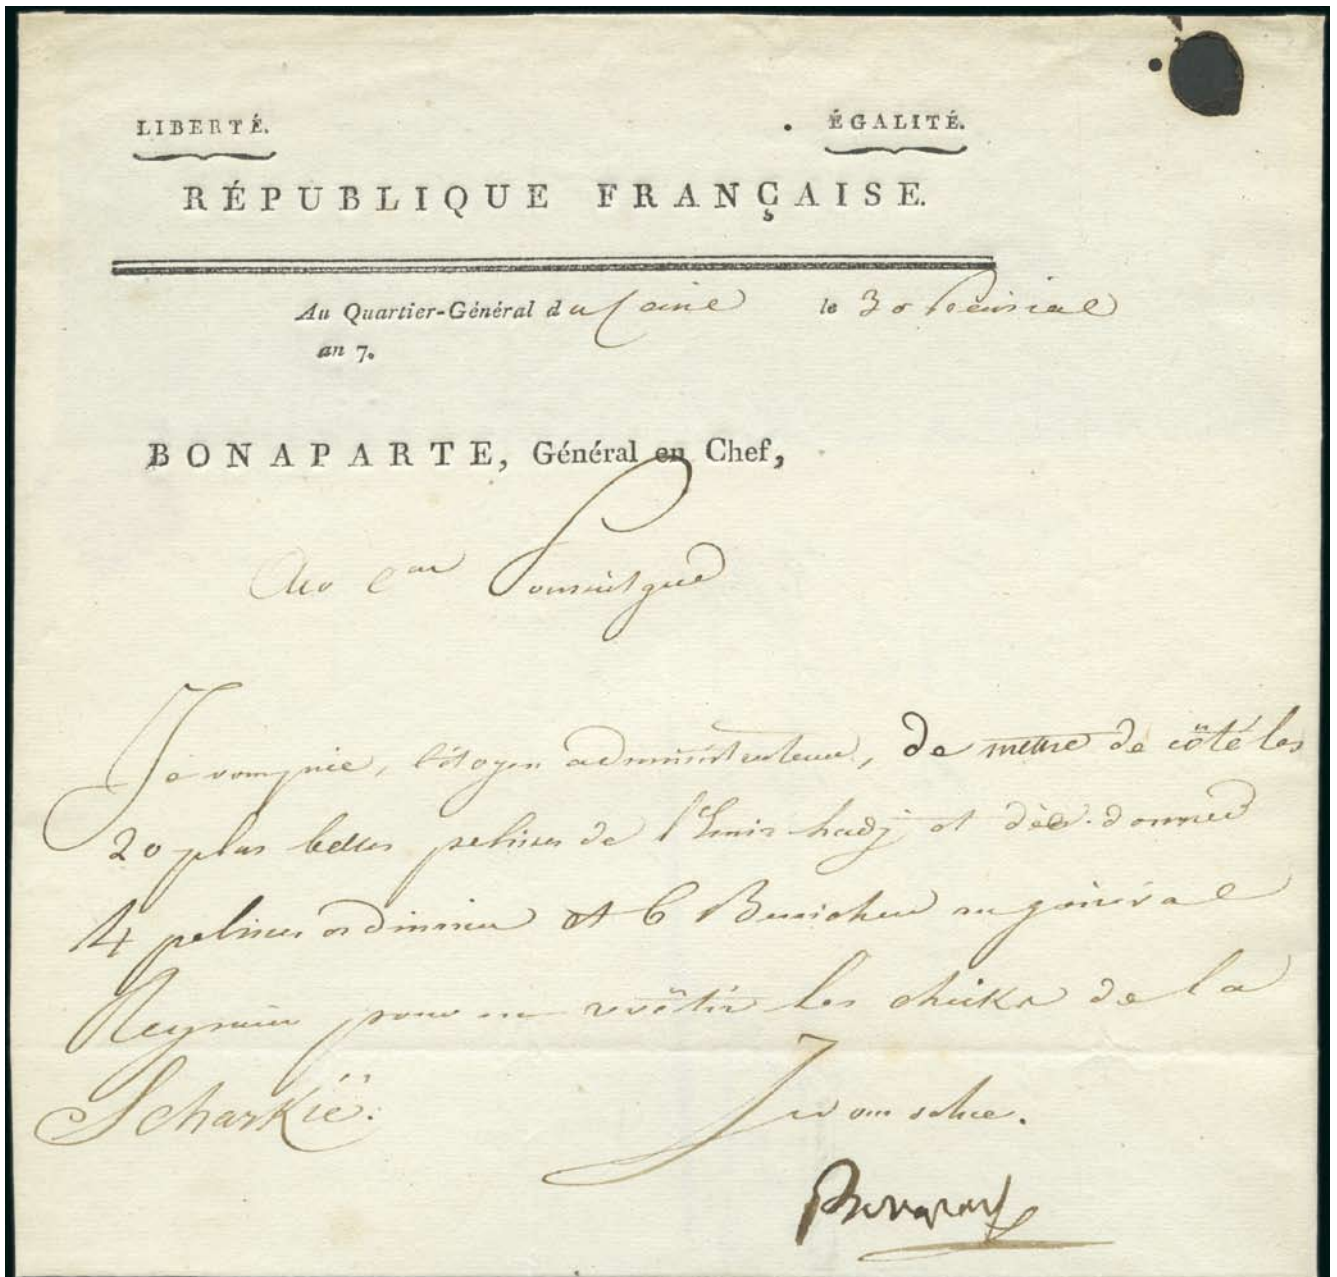 LIBERTÉ. ÉGALITÉ.
RÉPUBLIQUE FRANÇAISE.
Au Quartier-Général du Caire le 30 Prairial
an 7.
BONAPARTE, Général en Chef,
Au Cen Poussielgue
Je vous prie, Citoyen administrateur, de mettre de côté les
20 plus belles pelisses de l'Emir hadj, et de donner
4 pelisses ordinaires et 6 au général
Reynier pour en revêtir les cheiks de la
Scharkié.
Je vous salue.
Bonaparte